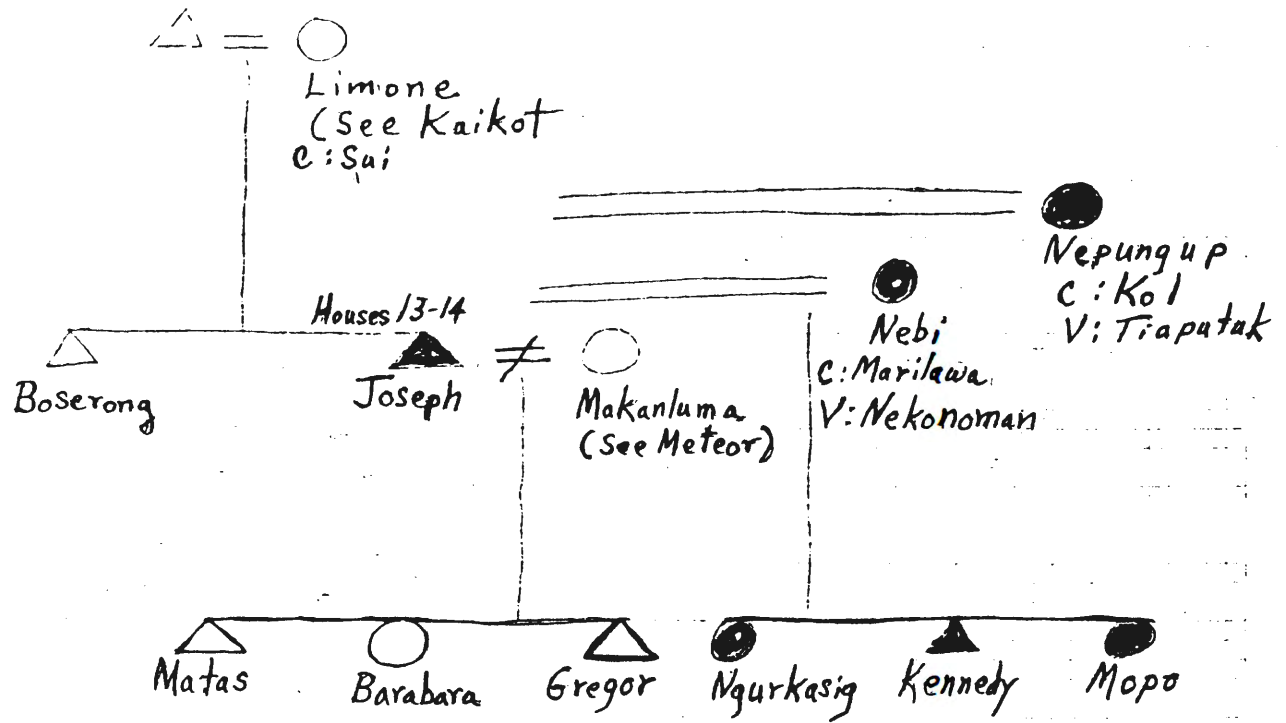 Limone
(See Kaikot
C: Sui
Nepungup
C: Kol
V: Tiaputuk
Houses 13-14
Nebi
C: Marilawa
V: Nekonoman
Boserong
Joseph
Makanluma
(See Meteor)
Matas
Barabara
Gregor
Ngurkasig
Kennedy
Mopo